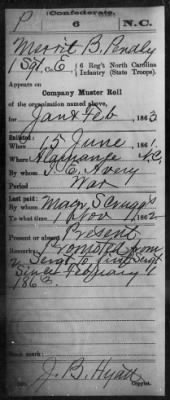 P
Confederate.
6
N.C.
Merrit B. Pendly
1 Sgt, Co. E, 6 Reg't North Carolina
Infantry (State Troops)
Appears on
Company Muster Roll
of the organization named above,
for Jan & Feb, 1863
Enlisted:
When 15 June, 1861
Where Alamance N.C.
By whom I. E. Avery
Period War
Last paid:
By whom Maj. Scruggs
To what time 1 Nov, 1862
Present or absent Present
Remarks: Promoted from
Sergt to First Sergt
Since February 1
1863.
Book mark:
J. B. Hyatt
Copyist.